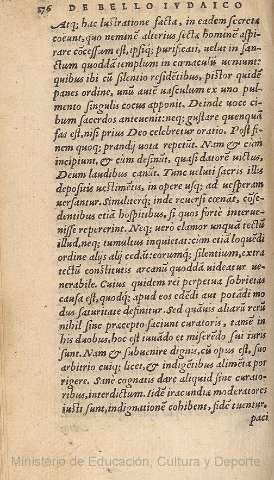 176 DE BELLO IVDAICO
Atq; hac lustratione facta, in eadem secreta
coeunt, quo neminē alterius sectæ hominē aspi-
rare cōcessum est, ipsiq; purificati, uelut in san-
ctum quoddā templum in cœnaculū ueniunt:
quibus ibi cū silentio residētibus, pistor quidē
panes ordine, unū autē uasculum ex uno pul-
mento singulis cocus apponit. Deinde uoce ci-
bum sacerdos anteuenit: neq; gustare quenquā
fas est, nisi prius Deo celebretur oratio. Post fi-
nem quoq; prandij uota repetūt. Nam & cùm
incipiunt, & cùm desinūt, quasi datorē uictus,
Deum laudibus canūt. Tunc ueluti sacris illis
depositis uestimētis, in opere usq; ad uesperam
uersantur. Similiterq́; inde reuersi cœnāt, cōse-
dentibus etiā hospitibus, si quos fortè interue-
nisse repererint. Neq; uerò clamor unquā tectū
illud, neq; tumultus inquietat: cùm etiā loquēdi
ordine alijs alij cedāt: eorumq́; silentium, extra
tectū constitutis arcanū quoddā uideatur ue-
nerabile. Cuius quidem rei perpetua sobrietas
causa est, quodq́; apud eos edēdi aut potādi mo
dus saturitate definitur. Sed quāuis aliarū rerū
nihil sine præcepto faciunt curatoris, tamē in
his duobus, hoc est iuuādo et miserēdo sui iuris
sunt. Nam & subuenire dignis, cū opus est, suo
arbitrio cuiq; licet, & indigētibus alimēta por
rigere. Sanè cognatis dare aliquid sine curato-
ribus, interdictum. Iidē iracundiæ moderatores
iusti sunt, indignationē cohibent, fidē tuentur,
paci
Ministerio de Educación, Cultura y Deporte